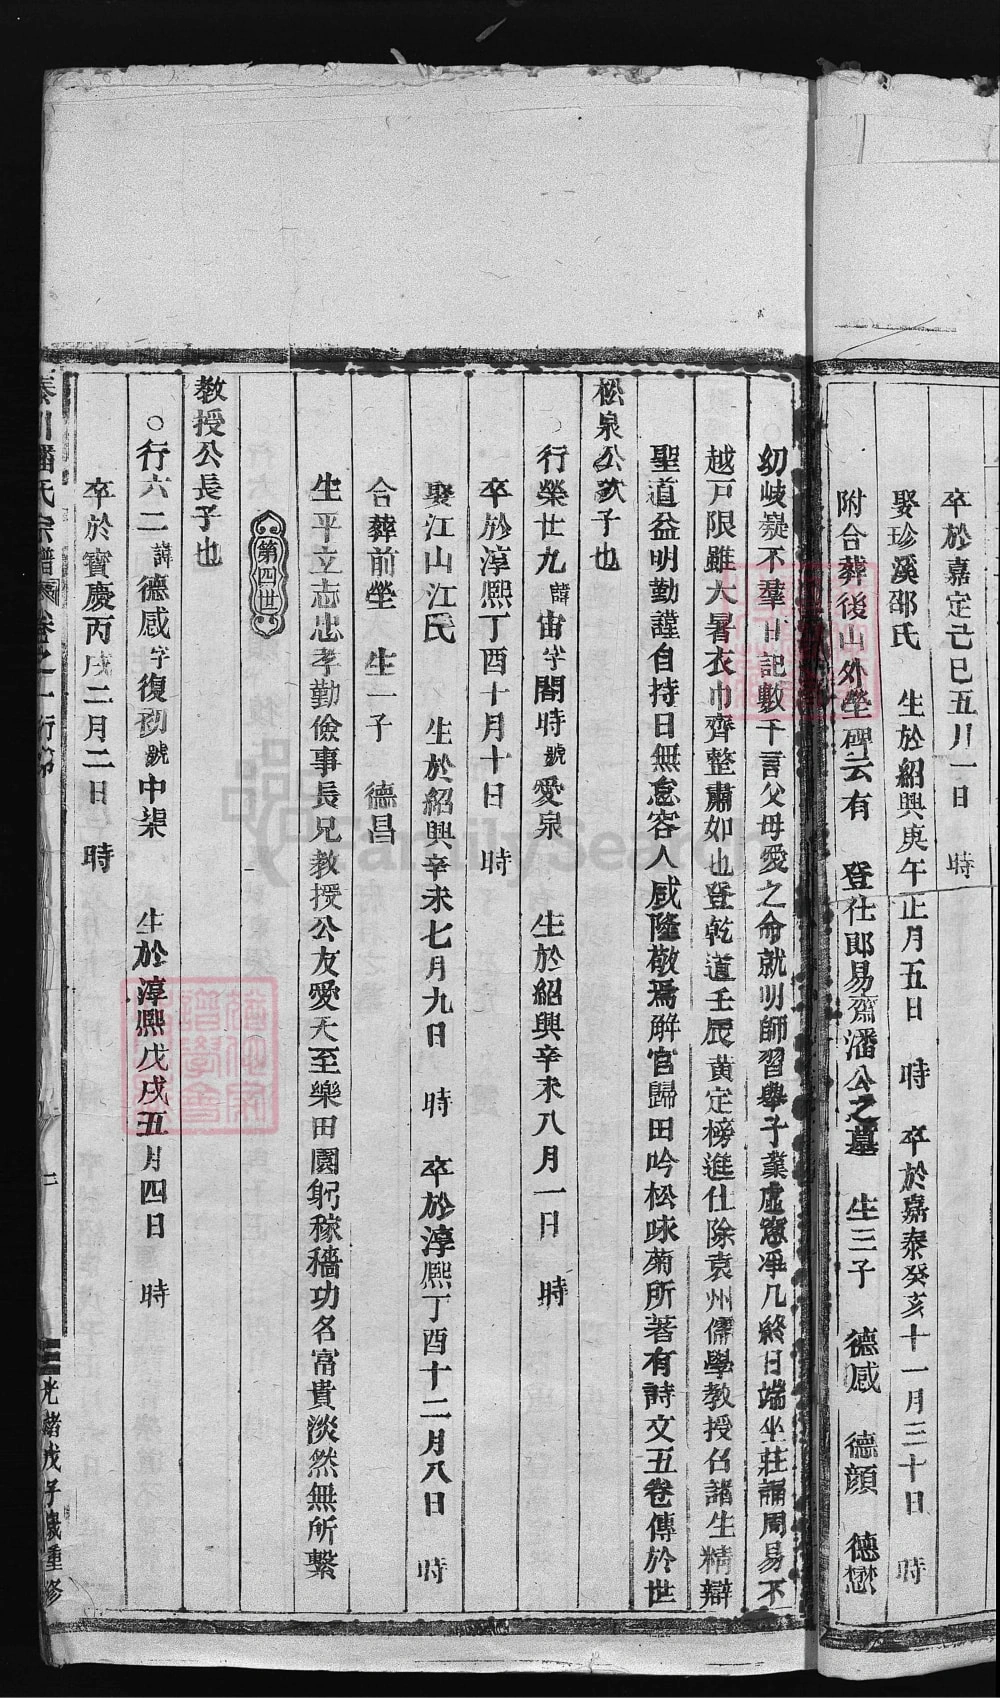 卒於嘉定己巳五月一日 時
娶珍溪邵氏 生於紹興庚午正月五日 時 卒於嘉泰癸亥十一月三十日 時
附合葬後山外塋碑云有 登仕郎易齋潘公之墓 生三子 德感 德顏 德懋
幼岐嶷不羣日記數千言父母愛之命就明師習舉子業虛窓凈几終日端坐莊誦周易不
越戸限雖大暑衣巾齊整肅如也登乾道壬辰黄定榜進仕除袁州儒學教授召諸生精辯
聖道益明勤謹自持日無怠容人咸隆敬焉解官歸田吟松咏菊所著有詩文五卷傳於世
松泉公次子也
○行榮廿九諱宙字閣時號愛泉 生於紹興辛未八月一日 時
卒於淳熙丁酉十月十日 時
娶江山江氏 生於紹興辛未七月九日 時 卒於淳熙丁酉十二月八日 時
合葬前塋 生一子 德昌
生平立志忠孝勤儉事長兄教授公友愛天至樂田園躬稼穡功名富貴淡然無所繫
第四世
教授公長子也
○行六二諱德感字復初號中渠 生於淳熙戊戌五月四日 時
卒於寶慶丙戌二月二日 時
秦川潘氏宗譜 卷之一行第 二 光緒戊子歲重修
FamilySearch